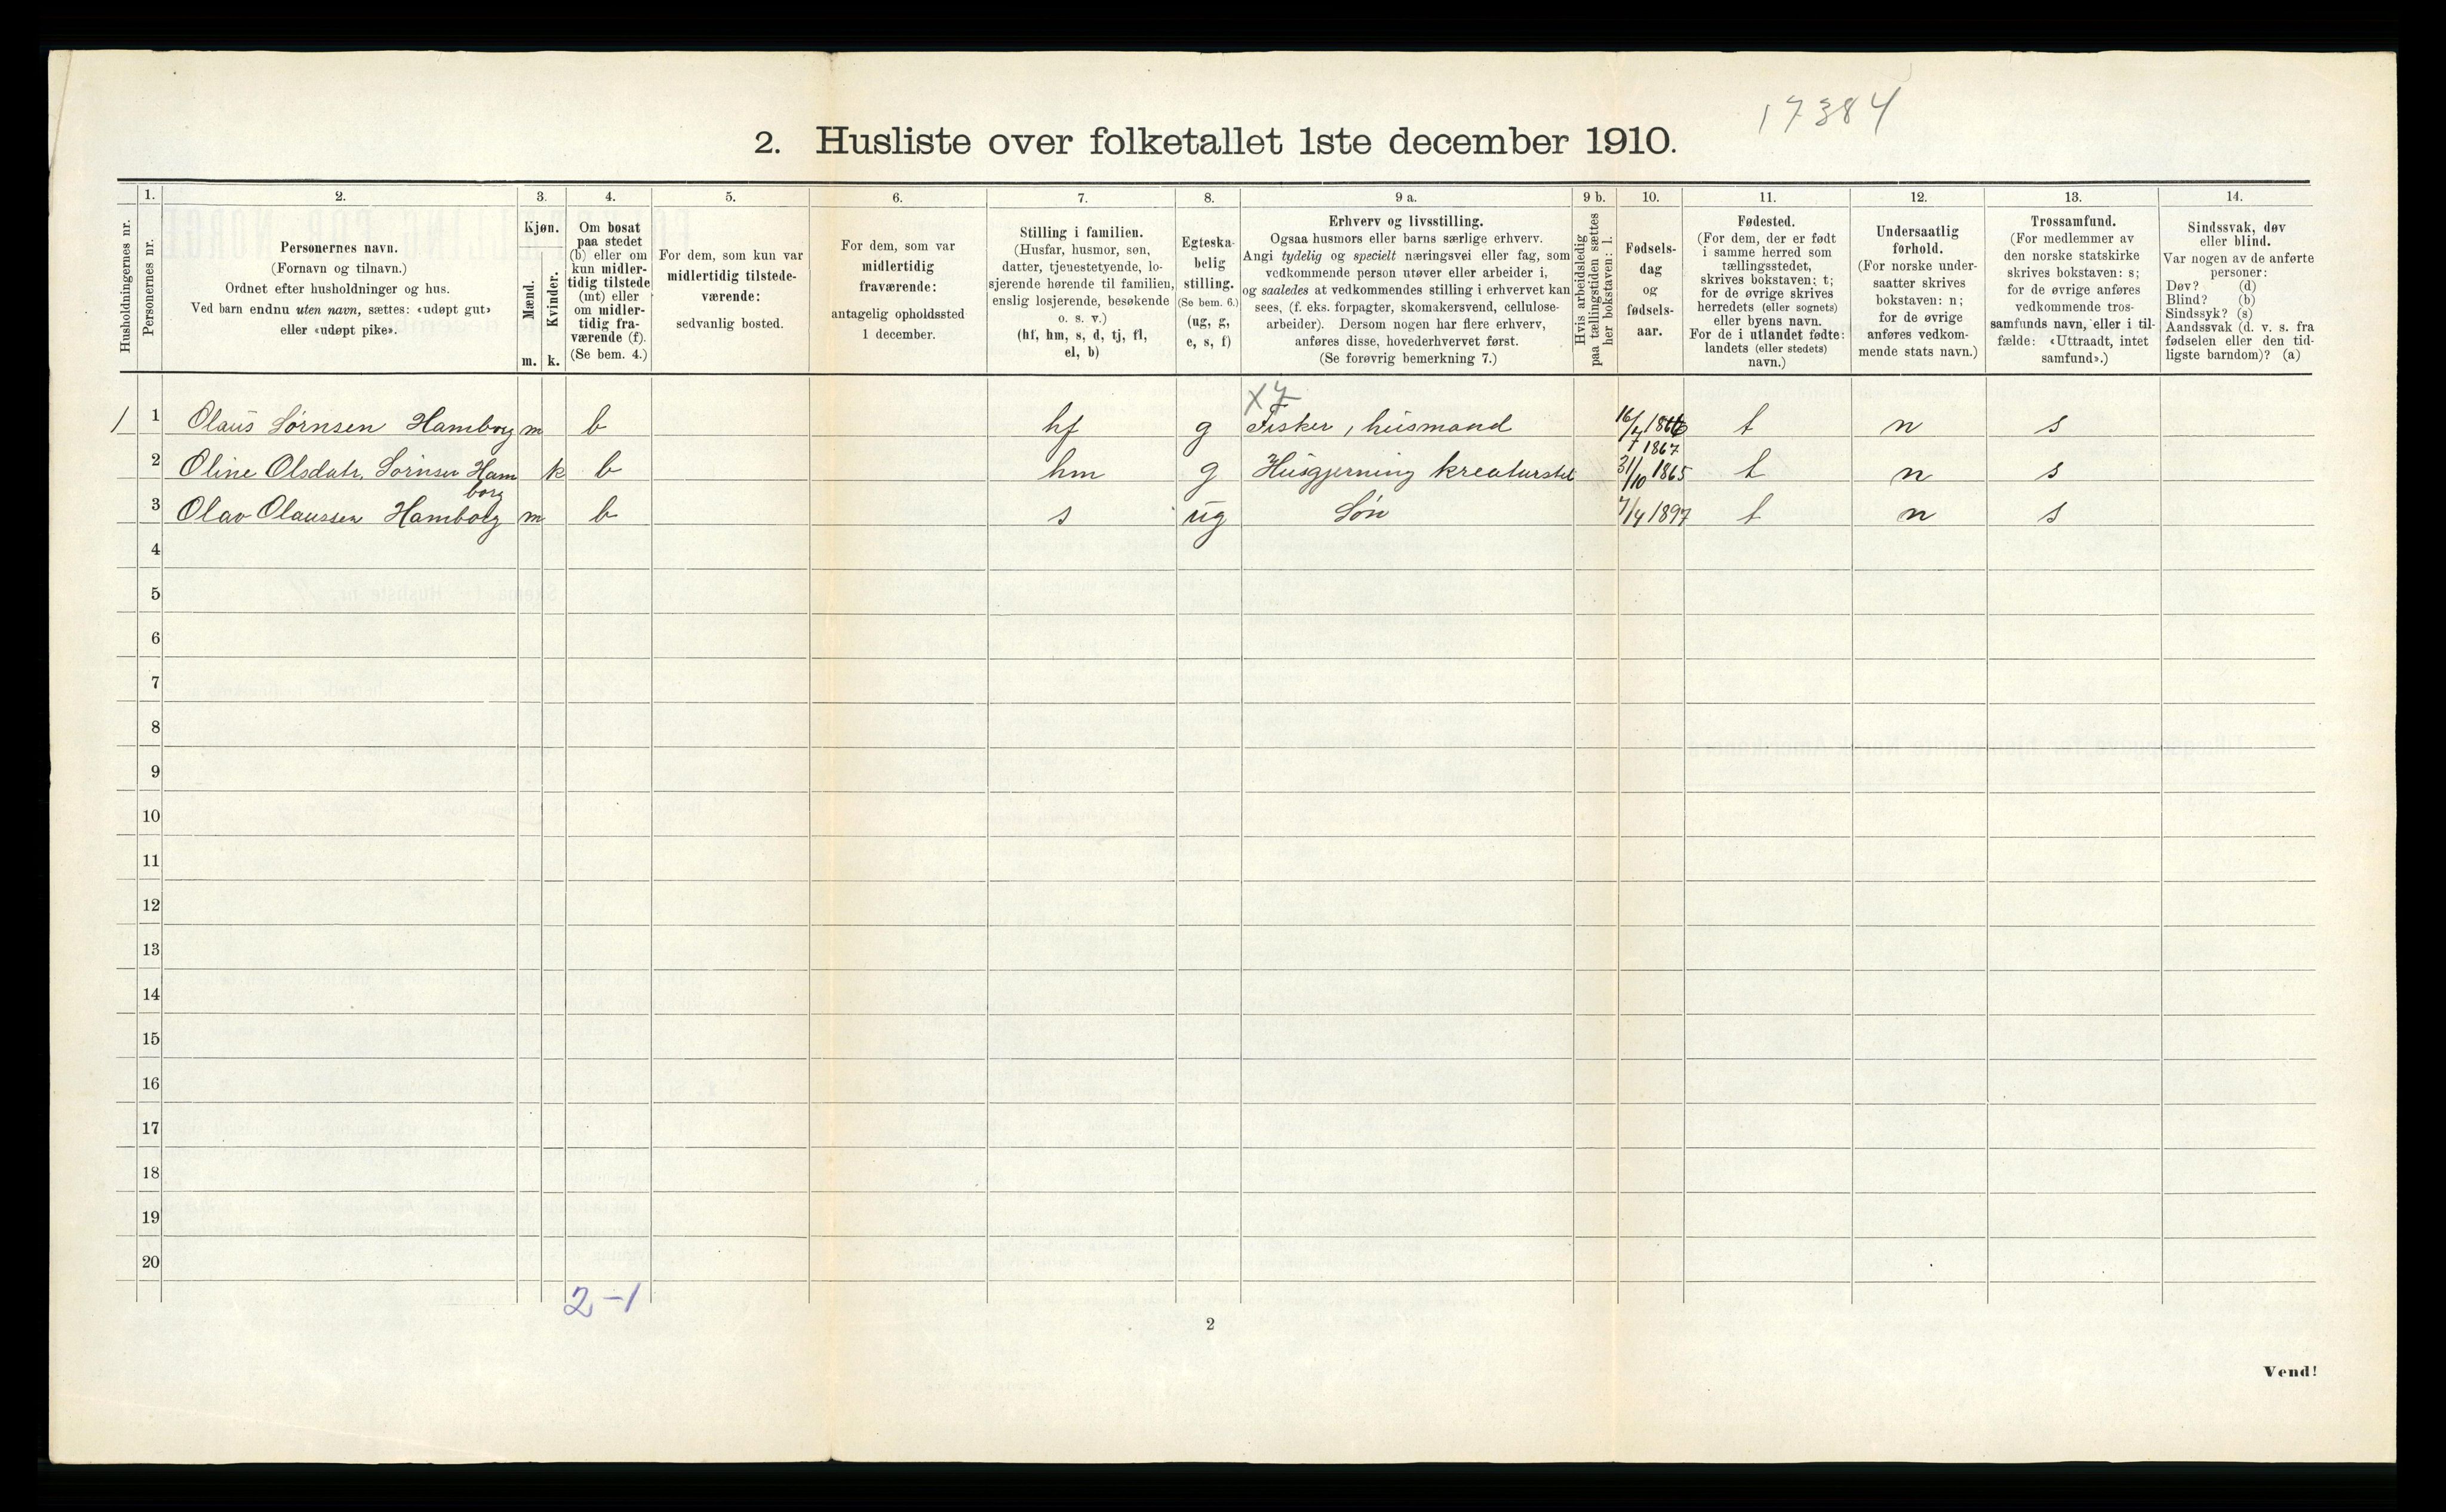 17384
2. Husliste over folketallet 1ste december 1910.
Husholdningernes nr.
1.
Personernes nr.
2.
Personernes navn.
(Fornavn og tilnavn.)
Ordnet efter husholdninger og hus.
Ved barn endnu uten navn, sættes: «udøpt gut»
eller «udøpt pike».
3.
Kjøn.
Mænd.
Kvinder.
m. k.
4.
Om bosat
paa stedet
(b) eller om
kun midler-
tidig tilstede
(mt) eller
om midler-
tidig fra-
værende (f).
(Se bem. 4.)
5.
For dem, som kun var
midlertidig tilstede-
værende:
sedvanlig bosted.
6.
For dem, som var
midlertidig
fraværende:
antagelig opholdssted
1 december.
7.
Stilling i familien.
(Husfar, husmor, søn,
datter, tjenestetyende, lo-
sjerende hørende til familien,
enslig losjerende, besøkende
o. s. v.)
(hf, hm, s, d, tj, fl,
el, b)
8.
Egteska-
belig
stilling.
(Se bem. 6.)
(ug, g,
e, s, f)
9 a.
Erhverv og livsstilling.
Ogsaa husmors eller barns særlige erhverv.
Angi tydelig og specielt næringsvei eller fag, som
vedkommende person utøver eller arbeider i,
og saaledes at vedkommendes stilling i erhvervet kan
sees, (f. eks. forpagter, skomakersvend, cellulose-
arbeider). Dersom nogen har flere erhverv,
anføres disse, hovederhvervet først.
(Se forøvrig bemerkning 7.)
9 b.
Hvis arbeidsledig
paa tællingstiden sættes
her bokstaven: l.
10.
Fødsels-
dag
og
fødsels-
aar.
11.
Fødested.
(For dem, der er født
i samme herred som
tællingsstedet,
skrives bokstaven: t;
for de øvrige skrives
herredets (eller sognets)
eller byens navn.
For de i utlandet fødte:
landets (eller stedets)
navn.)
12.
Undersaatlig
forhold.
(For norske under-
saatter skrives
bokstaven: n;
for de øvrige
anføres vedkom-
mende stats navn.)
13.
Trossamfund.
(For medlemmer av
den norske statskirke
skrives bokstaven: s;
for de øvrige anføres
vedkommende tros-
samfunds navn, eller i til-
fælde: «Uttraadt, intet
samfund».)
14.
Sindssvak, døv
eller blind.
Var nogen av de anførte
personer:
Døv? (d)
Blind? (b)
Sindssyk? (s)
Aandssvak (d. v. s. fra
fødselen eller den tid-
ligste barndom)? (a)
1 1 Olaus Sørnsen Hamborg m b hf g Fisker, husmand 1867 t n s
2 Oline Olsdatr. Sørnsen Ham
borg k b hm g Husgjerning kreaturstel 31/10 1865 t n s
3 Olav Olaussen Hamborg m b s ug Søn 7/4 1897 t n s
4
5
6
7
8
9
10
11
12
13
14
15
16
17
18
19
20
2-1
2
Vend!